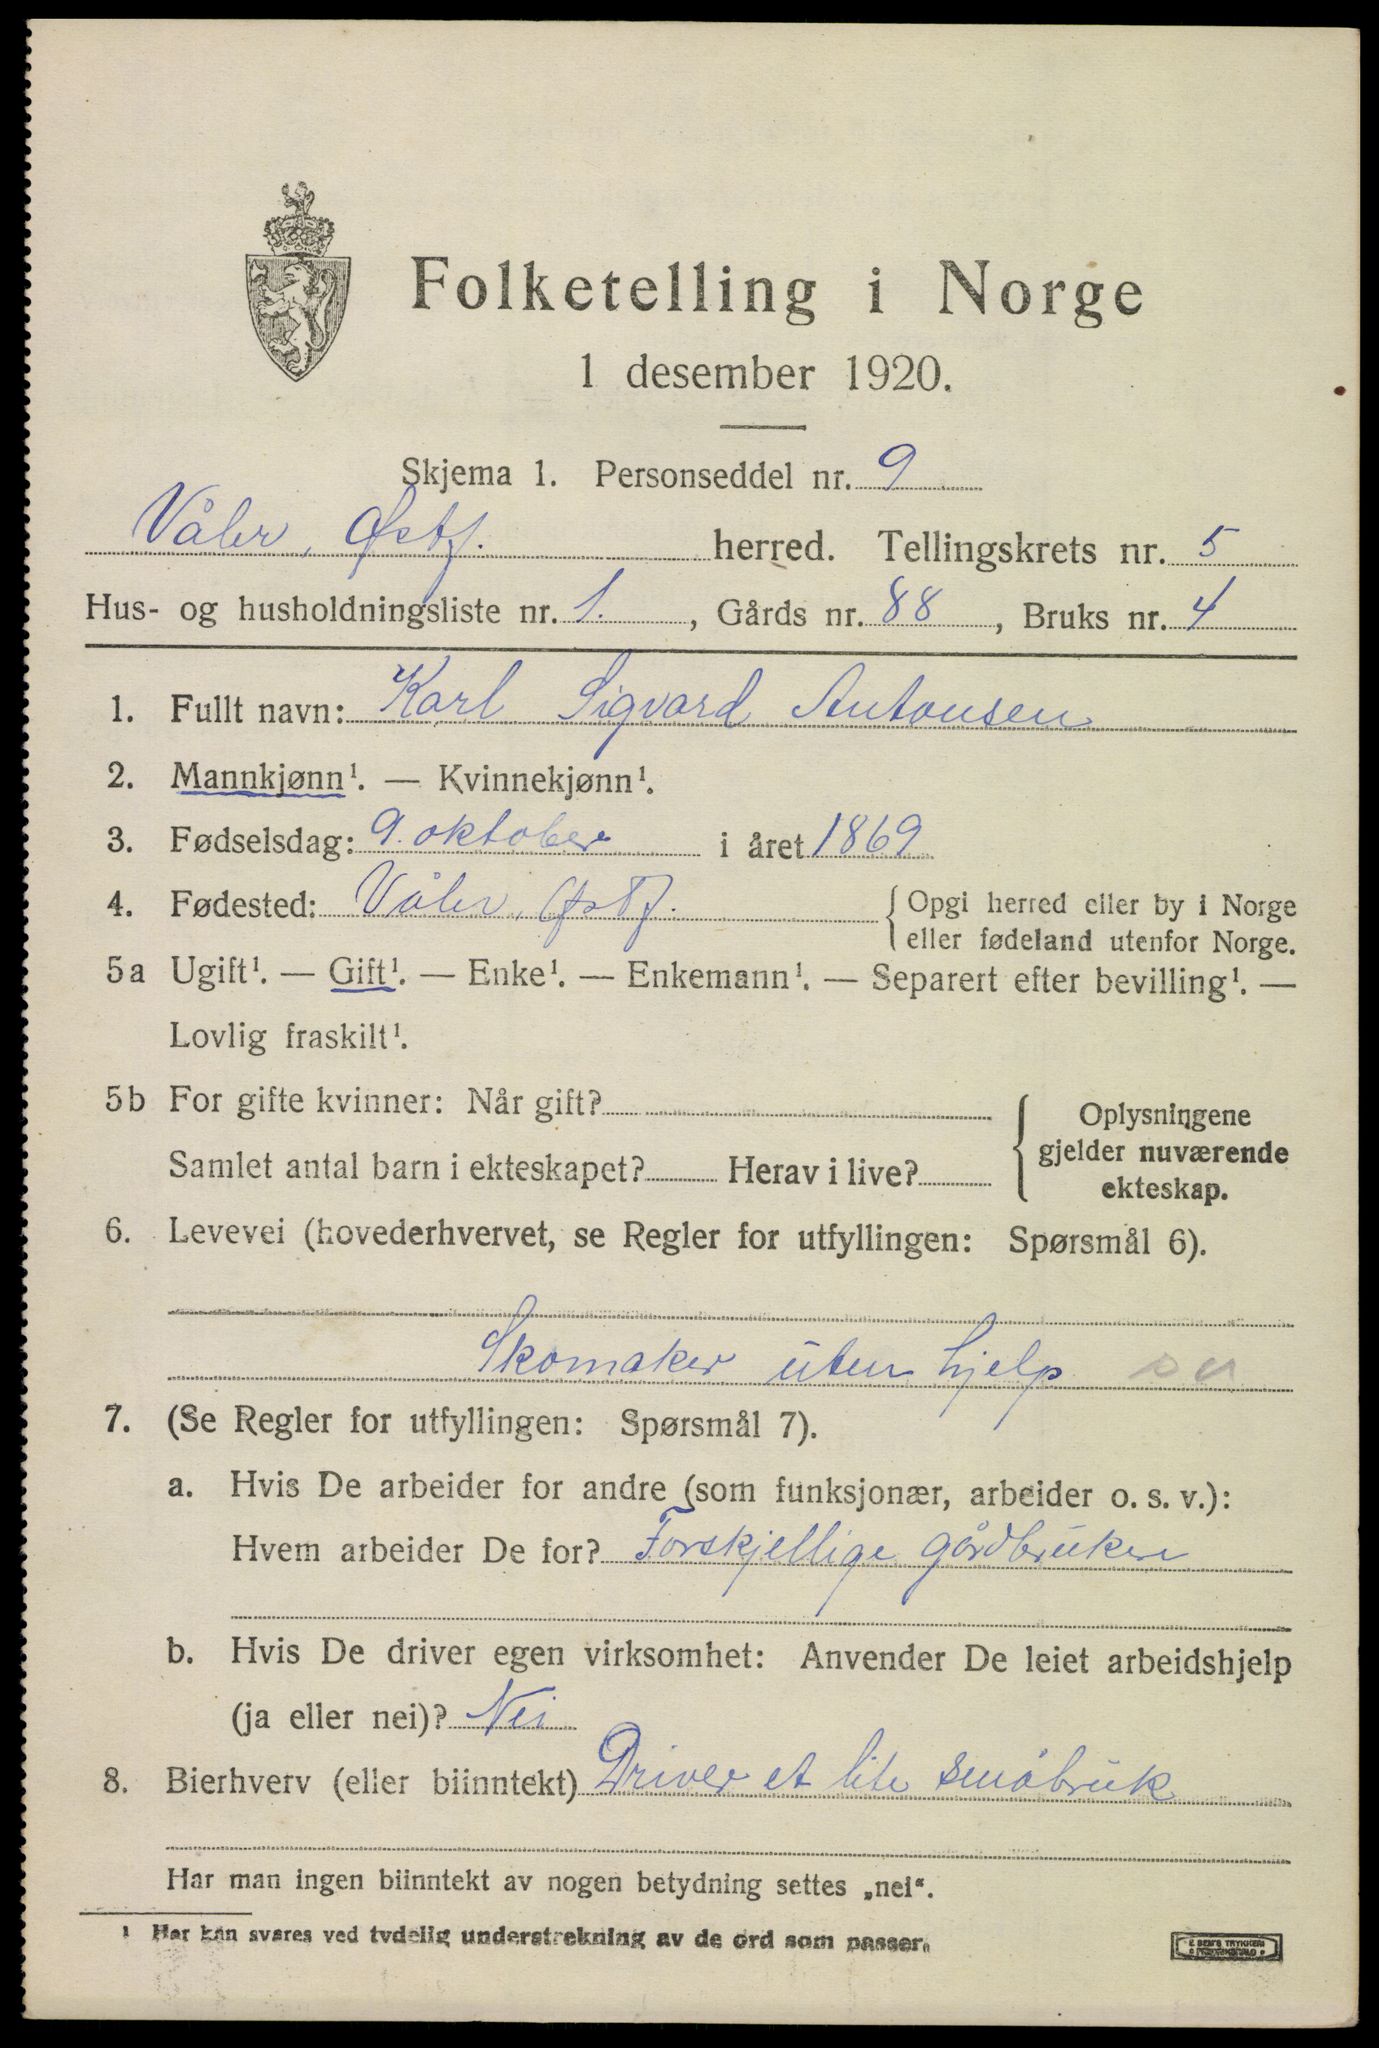 Folketelling i Norge
1 desember 1920.
Skjema 1. Personseddel nr. 9
Våler, Østf. herred. Tellingskrets nr. 5
Hus- og husholdningsliste nr. 1. , Gårds nr. 88 , Bruks nr. 4
1. Fullt navn: Karl Sigvard Antonsen
2. Mannkjønn¹. — Kvinnekjønn¹.
3. Fødselsdag: 9. oktober i året 1869
4. Fødested: Våler, Østf. { Opgi herred eller by i Norge
eller fødeland utenfor Norge.
5a Ugift¹. — Gift¹. — Enke¹. — Enkemann¹. — Separert efter bevilling¹. —
Lovlig fraskilt¹.
5b For gifte kvinner: Når gift?
Samlet antal barn i ekteskapet? Herav i live?
Oplysningene
gjelder nuværende
ekteskap.
6. Levevei (hovederhvervet, se Regler for utfyllingen: Spørsmål 6).
Skomaker uten hjelp
7. (Se Regler for utfyllingen: Spørsmål 7).
a. Hvis De arbeider for andre (som funksjonær, arbeider o. s. v.):
Hvem arbeider De for? Forskjellige gårdbrukere
b. Hvis De driver egen virksomhet: Anvender De leiet arbeidshjelp
(ja eller nei)? Nei
8. Bierhverv (eller biinntekt) Driver et lite småbruk
Har man ingen biinntekt av nogen betydning settes „nei“.
¹ Her kan svares ved tydelig understrekning av de ord som passer.